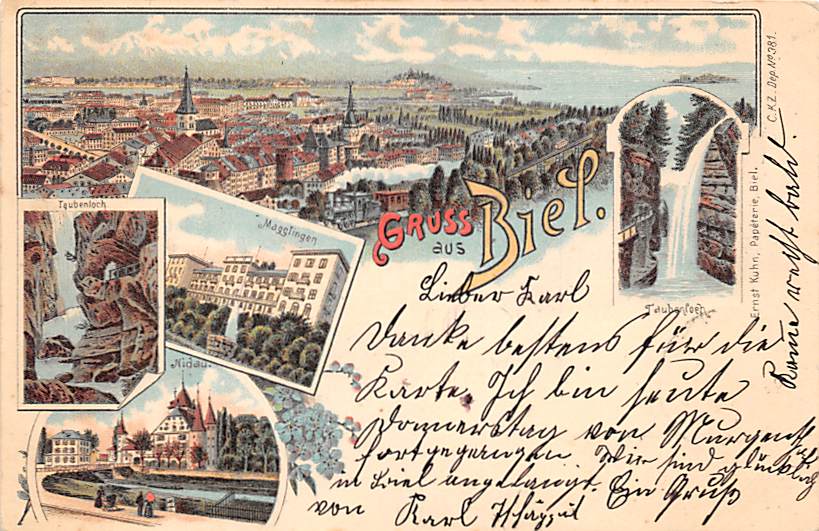 C.K.Z. Dep. No 381.
Taubenloch
Magglingen
GRUSS
aus
Biel.
Ernst Kuhn, Papéterie, Biel.
Taubenloch
Nidau.
Lieber Karl
Danke bestens für die
Karte. Ich bin heute
Donnerstag von Murgenthal
fortgegangen Wir sind glücklich
in Biel angelangt. Ein Gruß
von Karl
bald.